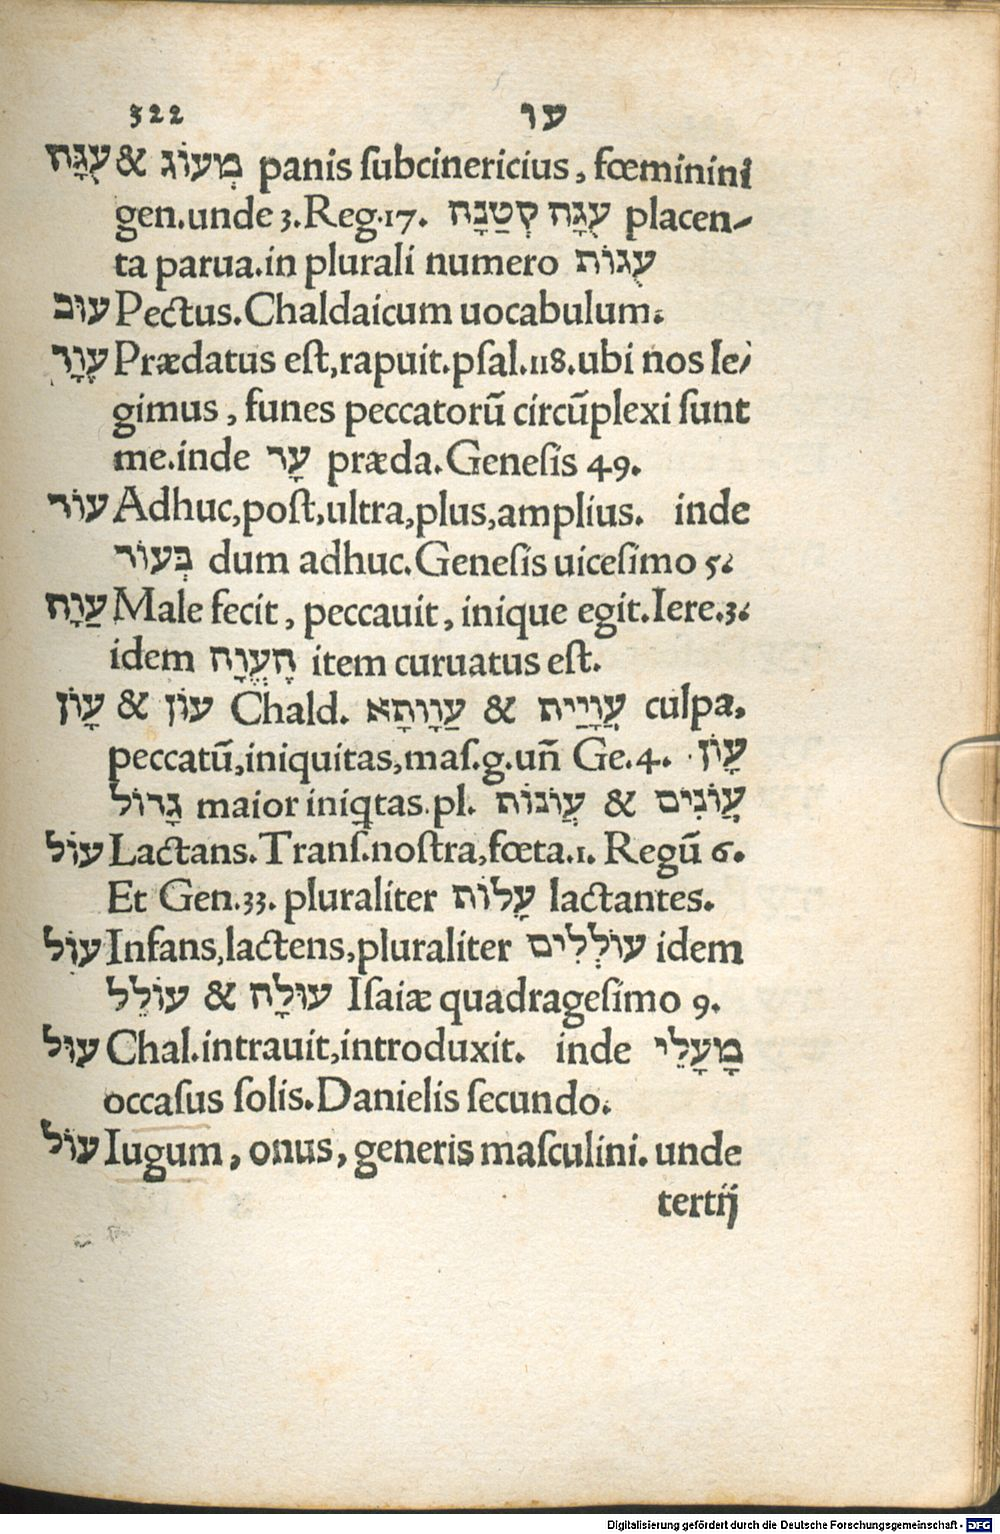 322 עו
עֻגָּה & מְעוֹג panis ſubcinericius, fœminini
gen.unde 3.Reg.17. עֻגָה קְטַנָּה placen-
ta parua.in plurali numero עֻגוֹת
עוּב Pectus.Chaldaicum uocabulum.
עָוַד Prædatus eſt,rapuit.pſal.118.ubi nos le-
gimus, funes peccatorū circūplexi ſunt
me.inde עָד præda.Geneſis 49.
עוֹד Adhuc,poſt,ultra,plus,amplius. inde
בְּעוֹד dum adhuc.Geneſis uiceſimo 5.
עַוָה Male fecit, peccauit, inique egit.Iere.3.
idem הֶעֱוָה item curuatus eſt.
עָוֹן & עוֹן Chald. עַוָותָא & עֲוָיַית culpa,
peccatū,iniquitas,maſ.g.uñ Ge.4. עָוֹן
גָדוֹל maior iniqtas.pl. עֲוֹנוֹת & עֲוֹנִים
עוֹל Lactans.Tranſ.noſtra,fœta.1. Regū 6.
Et Gen.33. pluraliter עָלוֹת lactantes.
עוֹל Infans,lactens,pluraliter עוֹלְלִים idem
עוֹלֵל & עוּלָה Iſaiæ quadrageſimo 9.
עוּל Chal.intrauit,introduxit. inde מָעָלֵי
occaſus ſolis.Danielis ſecundo.
עוֹל Iugum, onus, generis maſculini. unde
tertij
Digitalisierung gefördert durch die Deutsche Forschungsgemeinschaft - DFG